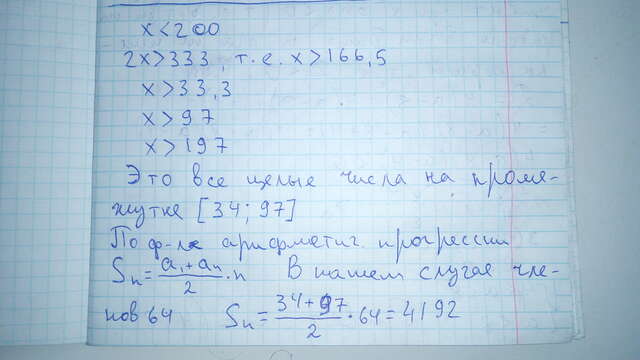 x<200
2x>333, т.е. x>166,5
x>33,3
x>97
x>197
Это все целые числа на проме-
жутке [34; 97]
По ф-ле арифметич. прогрессии
Sn = (a1+an)/2 · n В нашем случае чле-
нов 64 Sn = (34+97)/2 · 64 = 4192